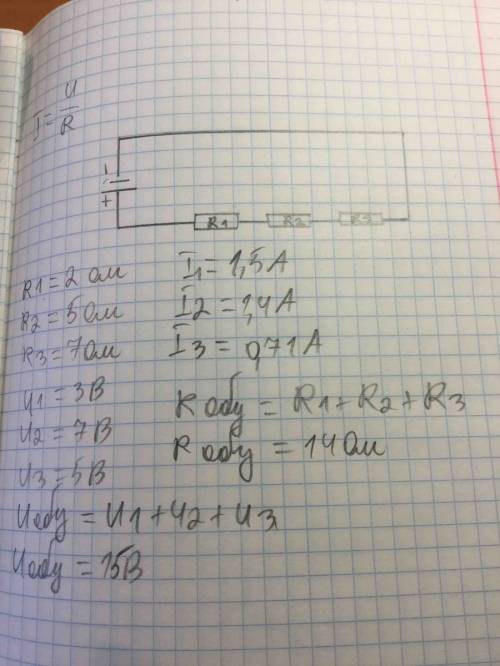 I = U/R
- +
R1 R2 R3
R1 = 2 Ом
R2 = 5 Ом
R3 = 7 Ом
U1 = 3В
U2 = 7В
U3 = 5В
Uобщ = U1 + U2 + U3
Uобщ = 15В
I1 = 1,5А
I2 = 1,4А
I3 = 0,71А
Rобщ = R1 + R2 + R3
Rобщ = 14 Ом